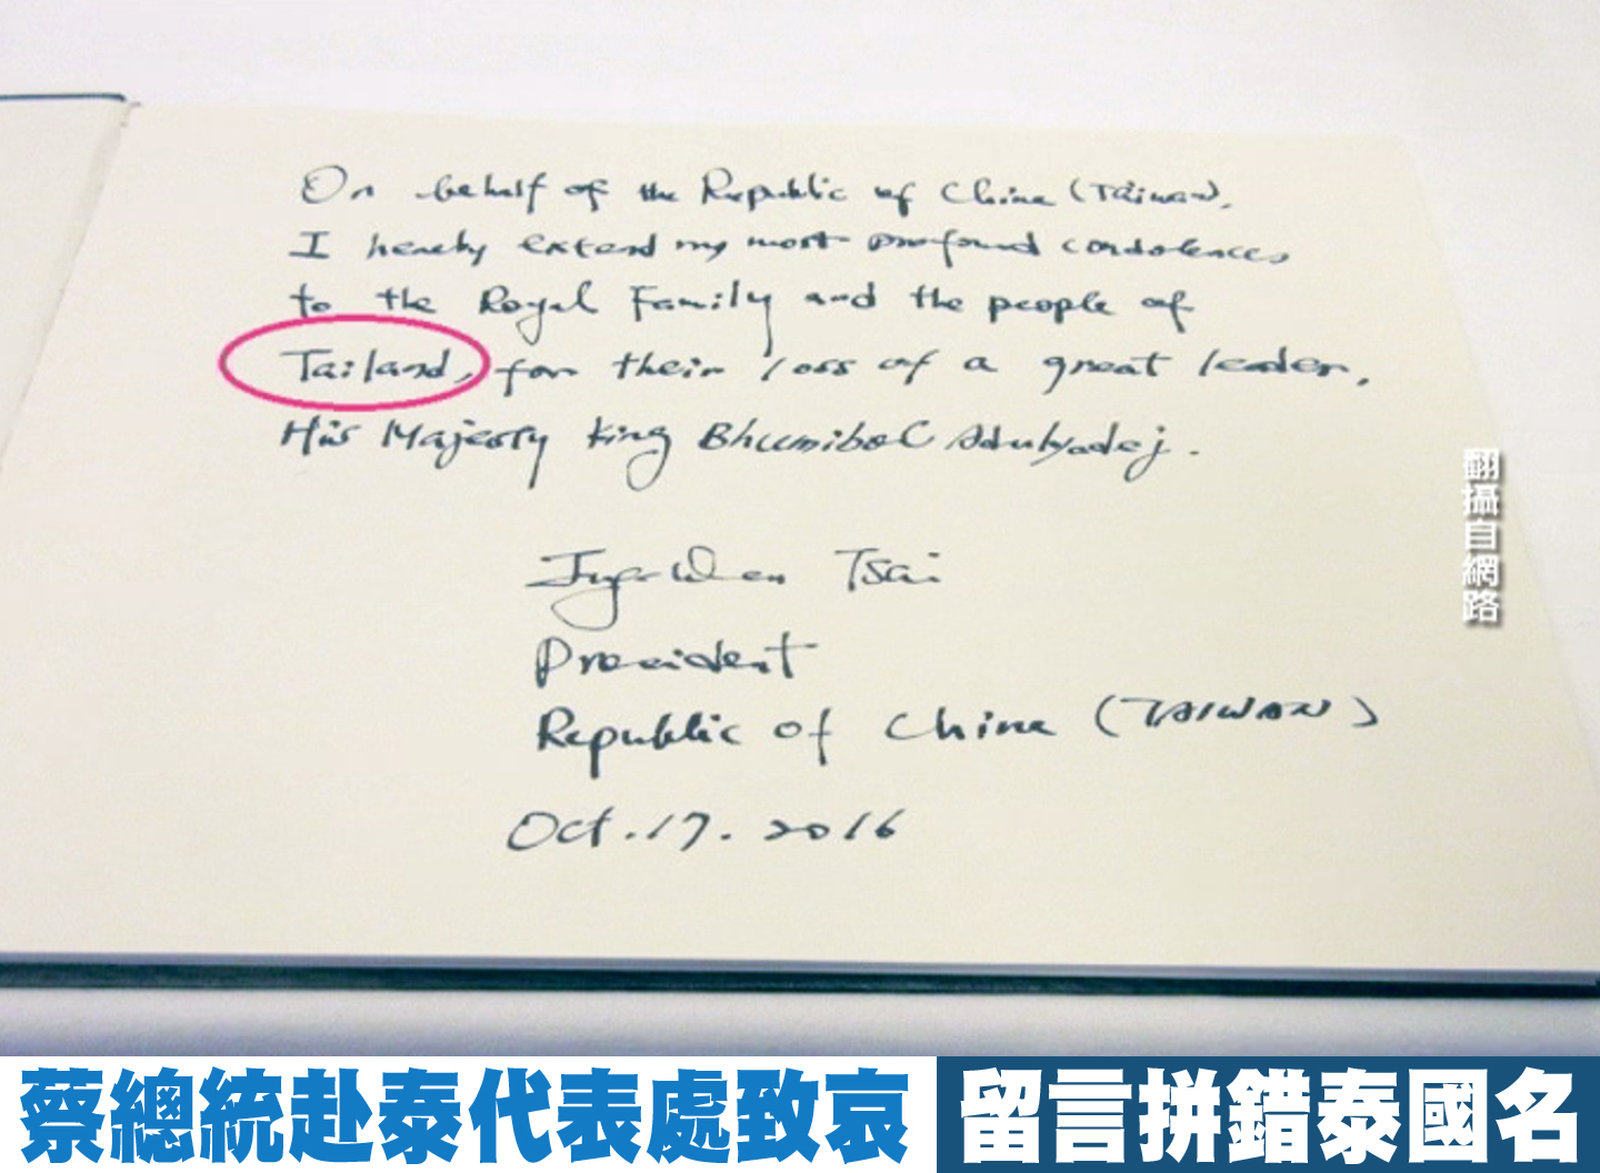 On behalf of the Republic of China (Taiwan),
I hereby extend my most profound condolences
to the Royal Family and the people of
Tailand, for their loss of a great leader,
His Majesty King Bhumibol Adulyadej.
Ing-Wen Tsai
President
Republic of China (TAIWAN)
Oct. 17. 2016
翻攝自網路
蔡總統赴泰代表處致哀 留言拼錯泰國名